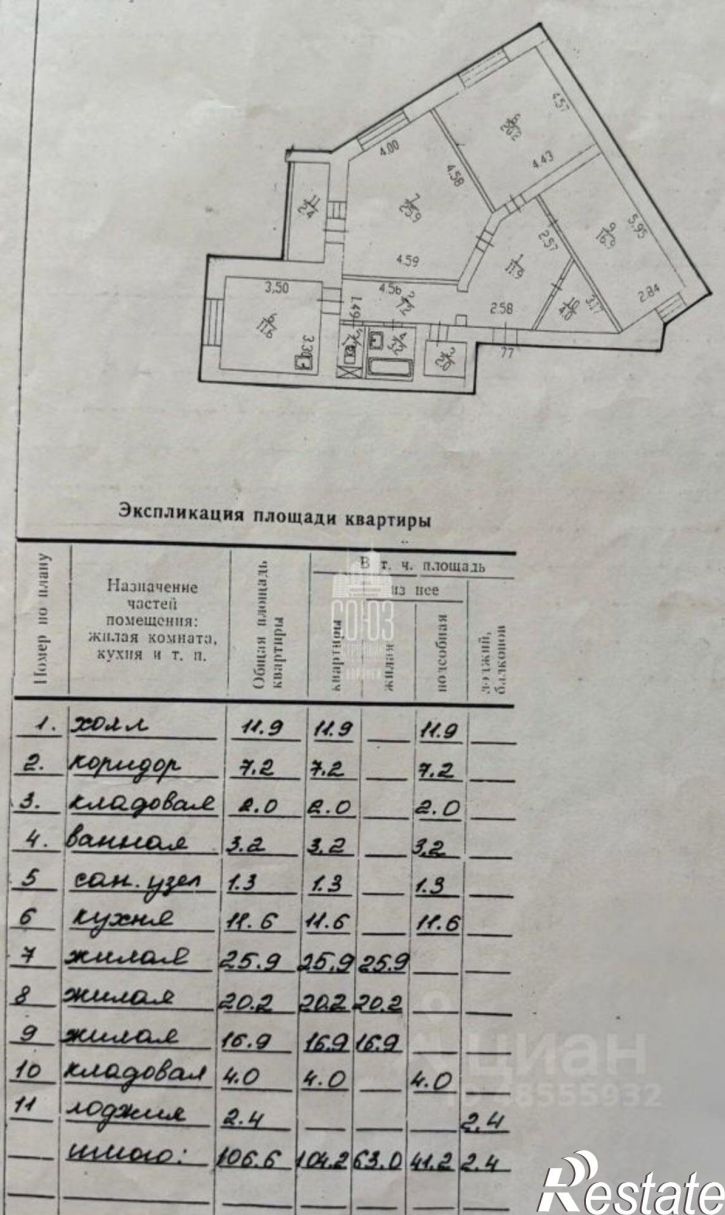 4.57
8
20.2
4.43
4.00
4.58
7
25.9
11
2.4
4.59
9
16.9
5.95
1
11.9
2.57
2.84
3.50
4.56
2
7.2
10
4.0
2.58
1.49
6
11.6
3.30
4
3.2
3
2.0
77
Экспликация площади квартиры
Номер по плану
Назначение
частей
помещения:
жилая комната,
кухня и т. п.
Общая площадь
квартиры
В т. ч. площадь
из нее
квартиры
жилая
подсобная
лоджий,
балконов
1. холл 11.9 11.9 11.9
2. коридор 7.2 7.2 7.2
3. кладовая 2.0 2.0 2.0
4. ванная 3.2 3.2 3.2
5 сан. узел 1.3 1.3 1.3
6 кухня 11.6 11.6 11.6
7 жилая 25.9 25.9 25.9
8 жилая 20.2 20.2 20.2
9 жилая 16.9 16.9 16.9
10 кладовая 4.0 4.0 4.0
11 лоджия 2.4 2.4
итого: 106.6 104.2 63.0 41.2 2.4
СОЮЗ
циан
48555932
Restate